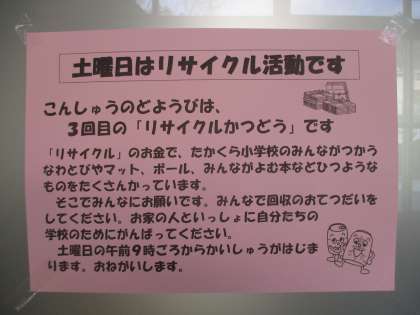 土曜日はリサイクル活動です
こんしゅうのどようびは、
３回目の「リサイクルかつどう」です
「リサイクル」のお金で、たかくら小学校のみんながつかう
なわとびやマット、ボール、みんながよむ本などひつような
ものをたくさんかっています。
そこでみんなにお願いです。みんなで回収のおてつだいを
してください。お家の人といっしょに自分たちの
学校のためにがんばってください。
土曜日の午前９時ごろからかいしゅうがはじま
ります。おねがいします。